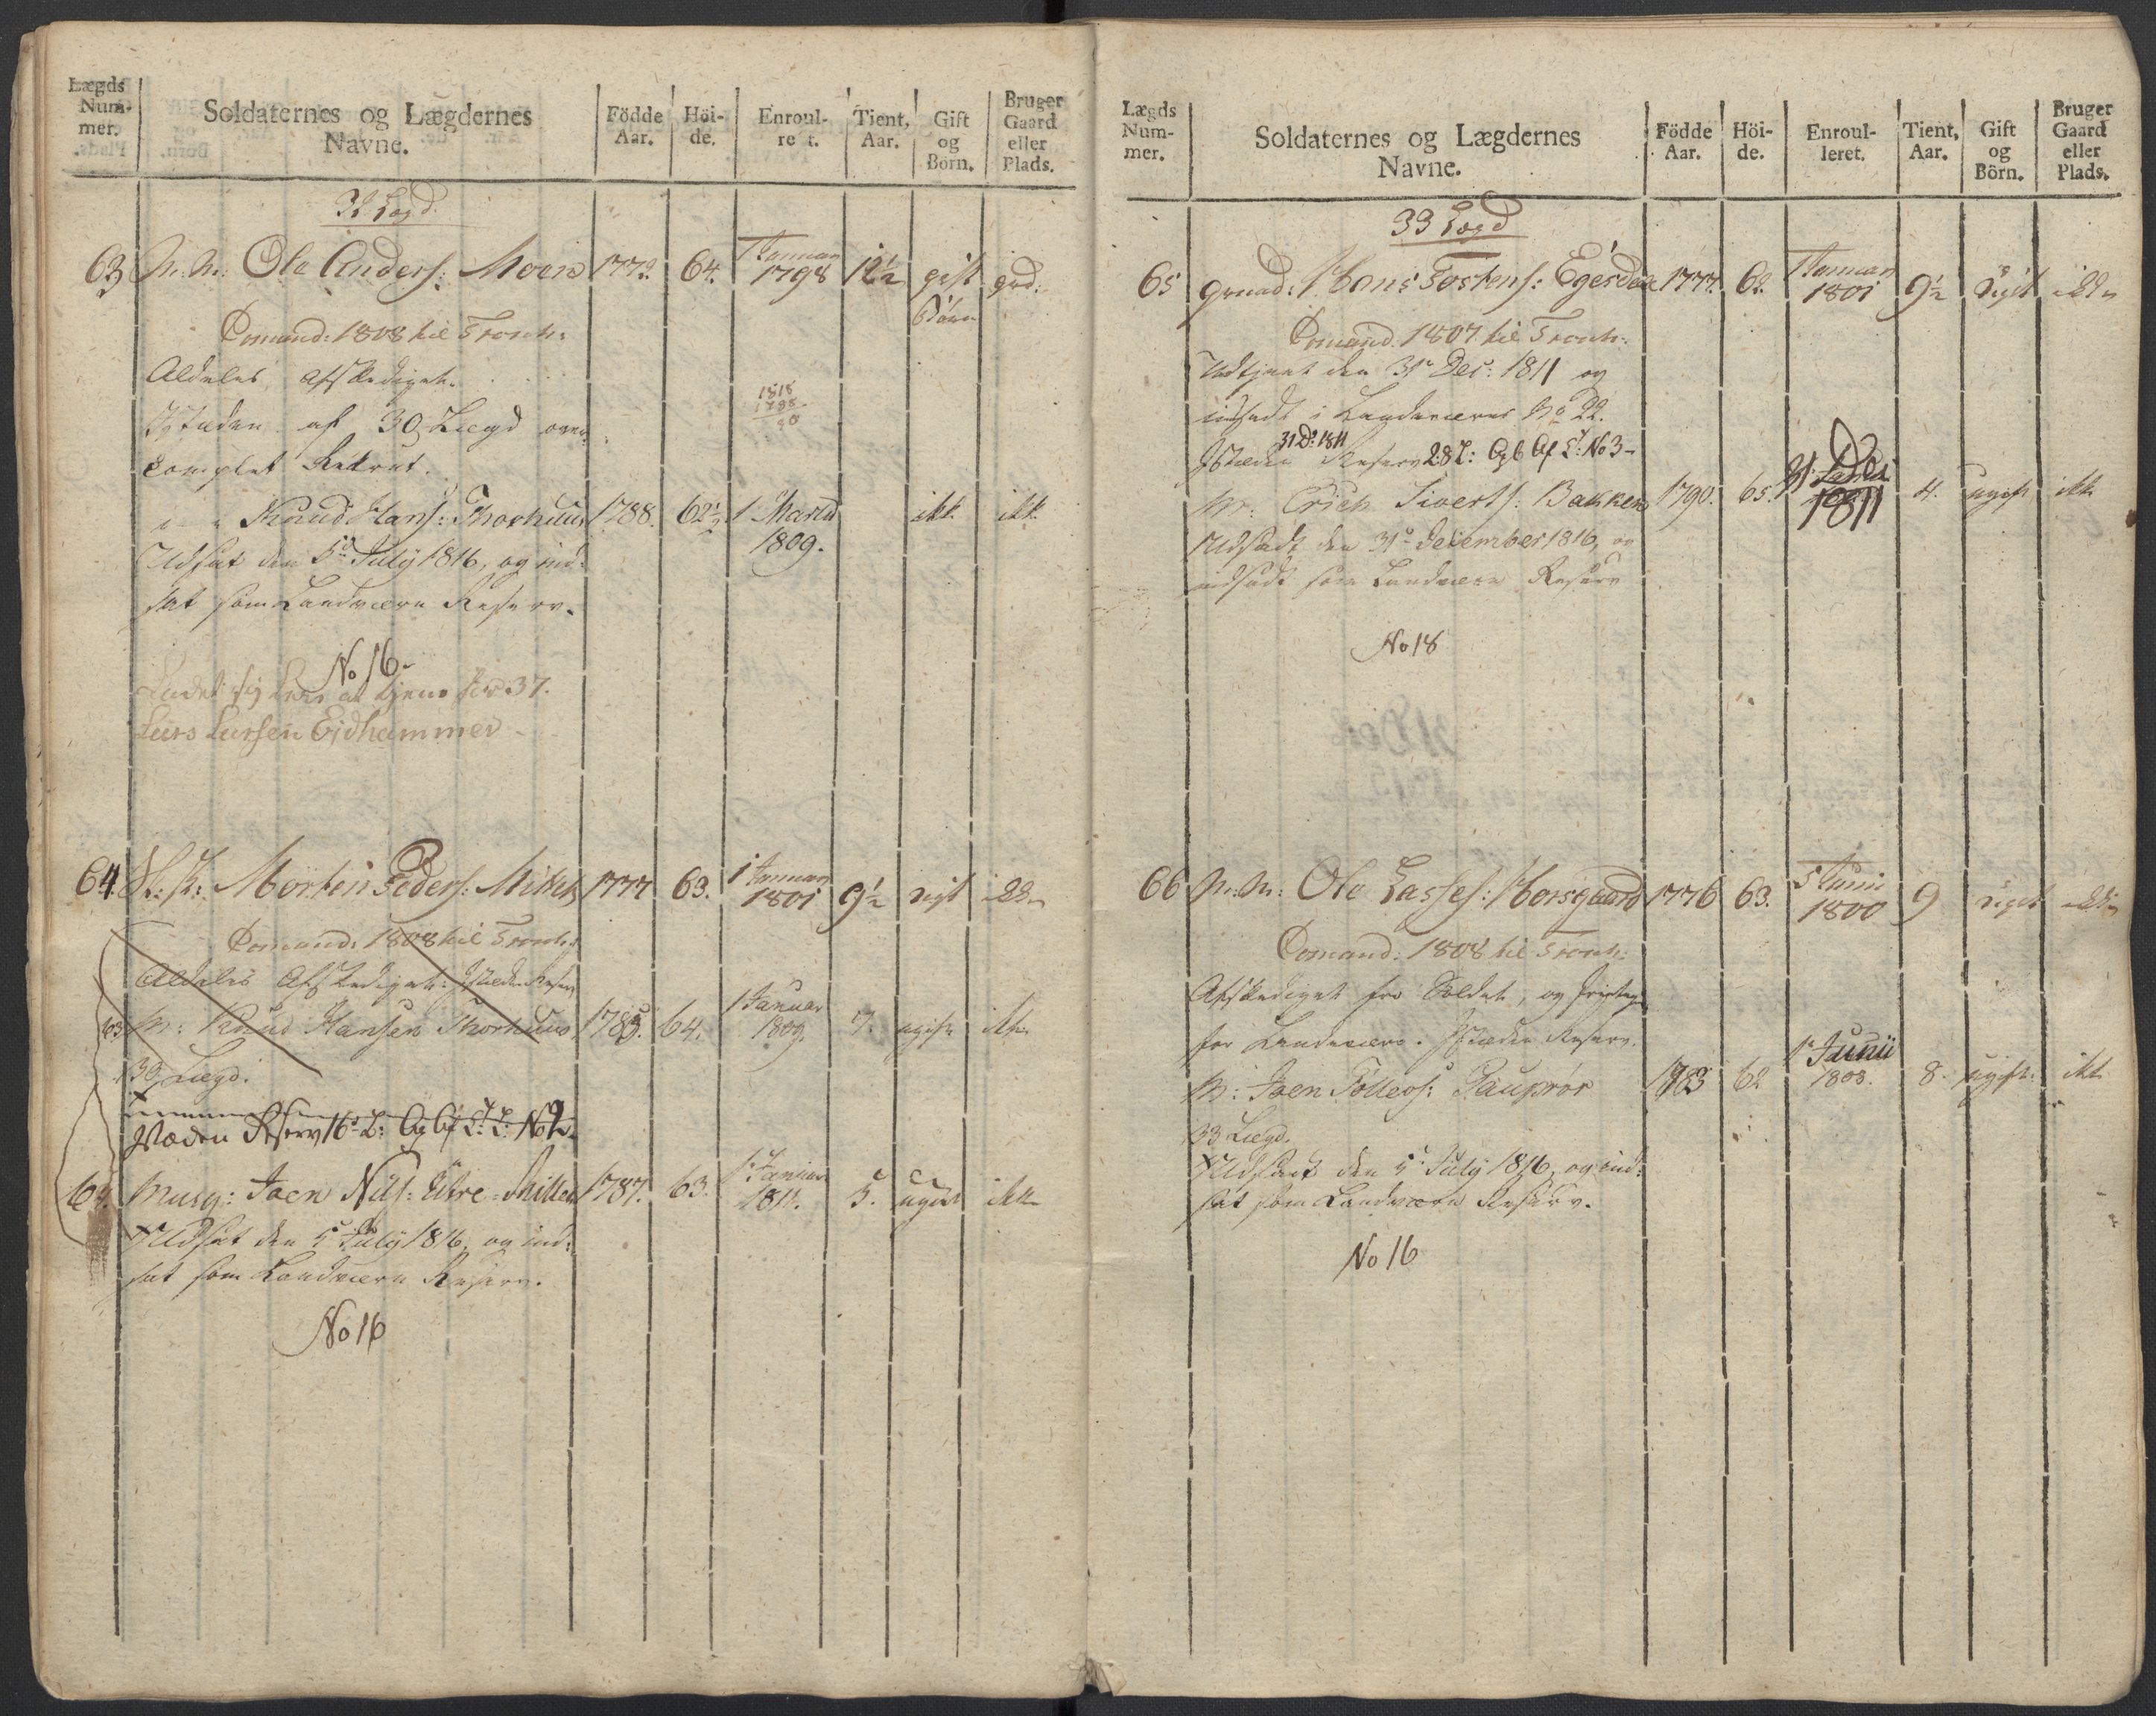 Lægds Num- mer. | Soldaternes og Lægdernes Navne. | Födde Aar. | Höi- de. | Enroul- re t. | Tient, Aar. | Gift og Börn. | Bruger Gaard eller Plads.
32 Lægd.
63 M. M: Ole Anders: Moen 1772. 64. 1 Januar 1798 12½ gift grd.
6 Börn
Comand: 1808 til Tronh:
Aldeles Afskediget.
1818
1798
20
Istæden af 30 Lægd over
complet Rekrut.
Knud Hans: Thorhuus 1788. 62½ 1 Martii 1809. ikk. ikk.
Udsat den 5te July 1816, og ind-
sat som Landværn Reserv.
No 16.
Ladet sig at tjene for 37.
Lars Larsen Eidhammer
64. Morten Peders: Mittet 1777 63. 1 Januar 1801 9½ ugift ikke
Comand: 1808 til Tronh:
Aldeles Afskediget: Istæden Reserv
63 M: Knud Hansen Thorhuus 1785. 64. 1 Januar 1809. 7. ugift ikke
30 Lægd.
Istæden Reserv 16 L: No 2.
64. Musq: Joen Nils: Ütre-Mittet 1787. 63. 1 Januar 1811. 5. ugift ikke
Udsat den 5te July 1816, og ind-
sat som Landværn Reserv.
No 16
Lægds Num- mer. | Soldaternes og Lægdernes Navne. | Födde Aar. | Höi- de. | Enroul- leret. | Tient, Aar. | Gift og Börn. | Bruger Gaard eller Plads.
33 Lægd
65 grenad: Hans Tostens: Egesdal 1777. 62. 1 Januar 1801 9½ ugift ikke
Comand. 1807 til Tronh:
Udtjent den 31te Dec: 1811 og
indsadt i Landværnet No 22.
31 D: 1811
Istæden Reserv 28 L: No 3-
M: Erich Siverts: Bakken 1790. 65. 31 Dec 1811 4. ugift ikke
Udsadt den 31te December 1816, og
indsadt som Landværn Reserv
No 18
66 M: M: Ole Lasses: Horsgaard 1776 63. 5 Juni 1800 9 ugift ikke
Comand: 1808 til Tronh:
Afskediget fra Soldat, og
for Landværn. Istæden Reserv.
M: Joen Tolleos: Paupröe 1783 62 1te Junii 1808. 8. ugift. ikke
33 Lægd.
Udsadt den 5te July 1816, og ind-
sat som Landværn Reserv.
No 16